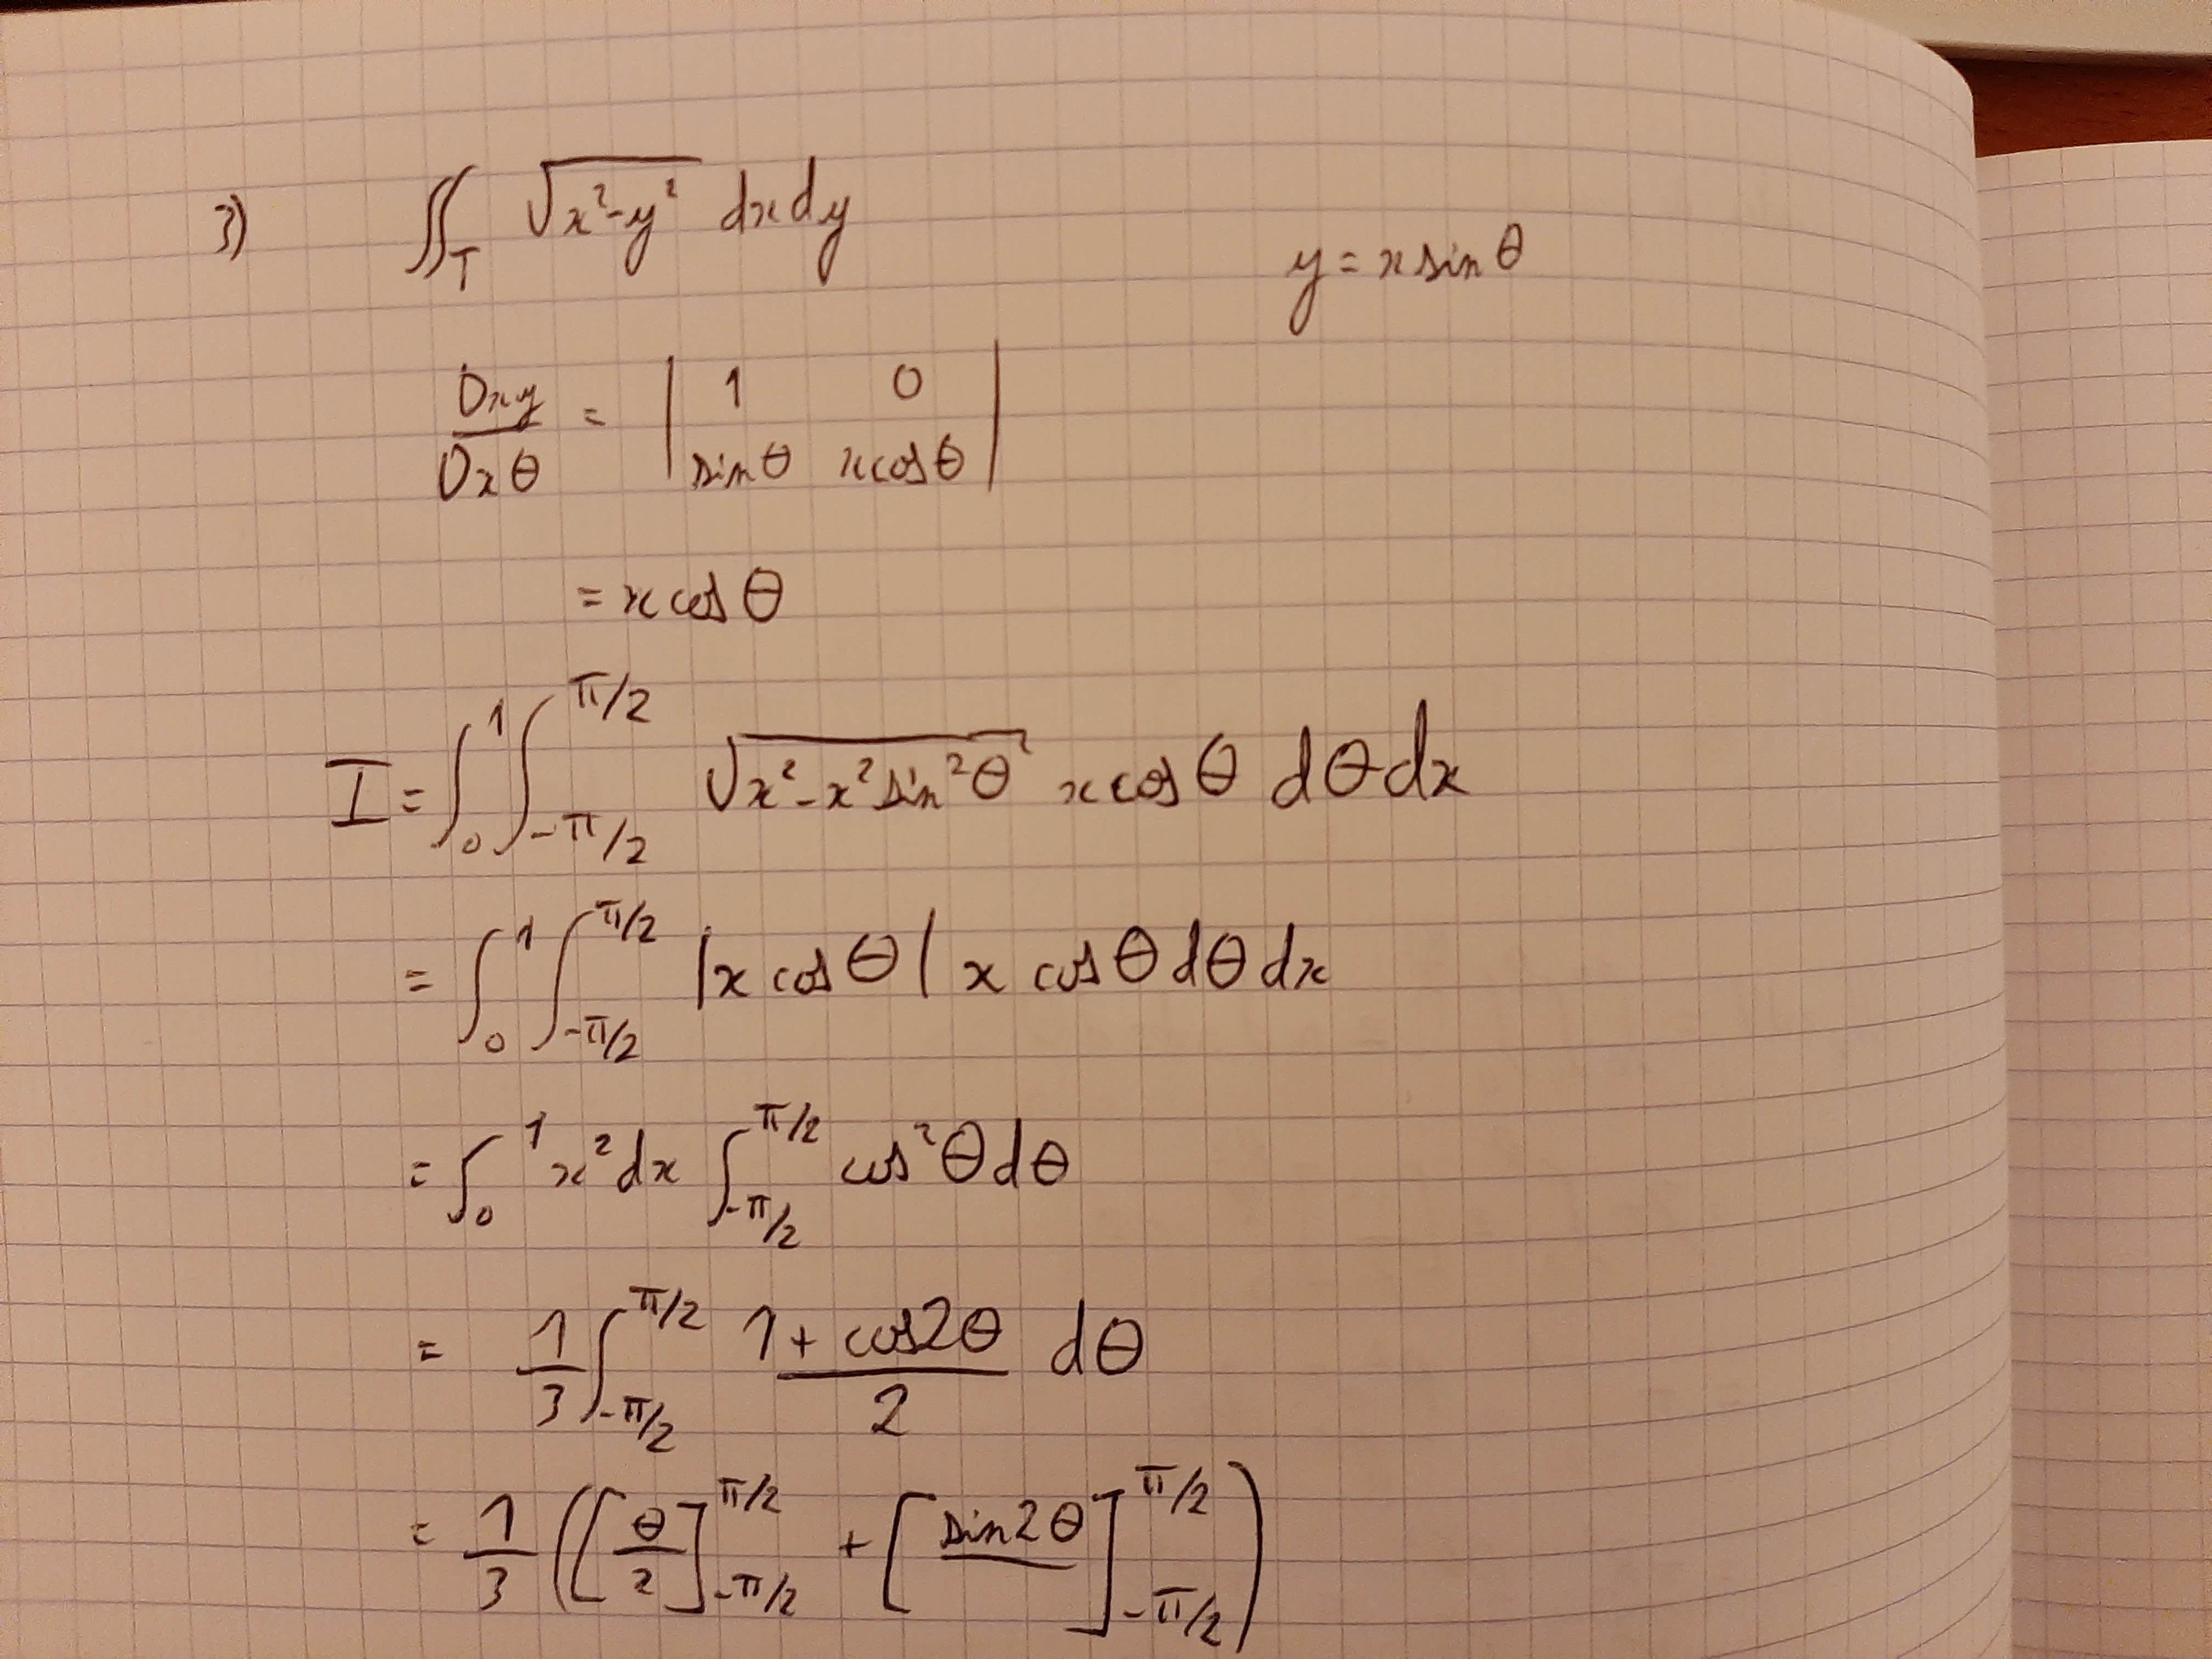 3) ∬_T √(x²-y²) dxdy
y = x sin θ
Dxy/Dxθ = | 1 0 ; sin θ x cos θ |
= x cos θ
I = ∫_0^1 ∫_{-π/2}^{π/2} √(x²-x² sin²θ) x cos θ dθ dx
= ∫_0^1 ∫_{-π/2}^{π/2} |x cos θ| x cos θ dθ dx
= ∫_0^1 x² dx ∫_{-π/2}^{π/2} cos²θ dθ
= 1/3 ∫_{-π/2}^{π/2} (1 + cos2θ)/2 dθ
= 1/3 ([θ/2]_{-π/2}^{π/2} + [sin2θ/ ]_{-π/2}^{π/2})